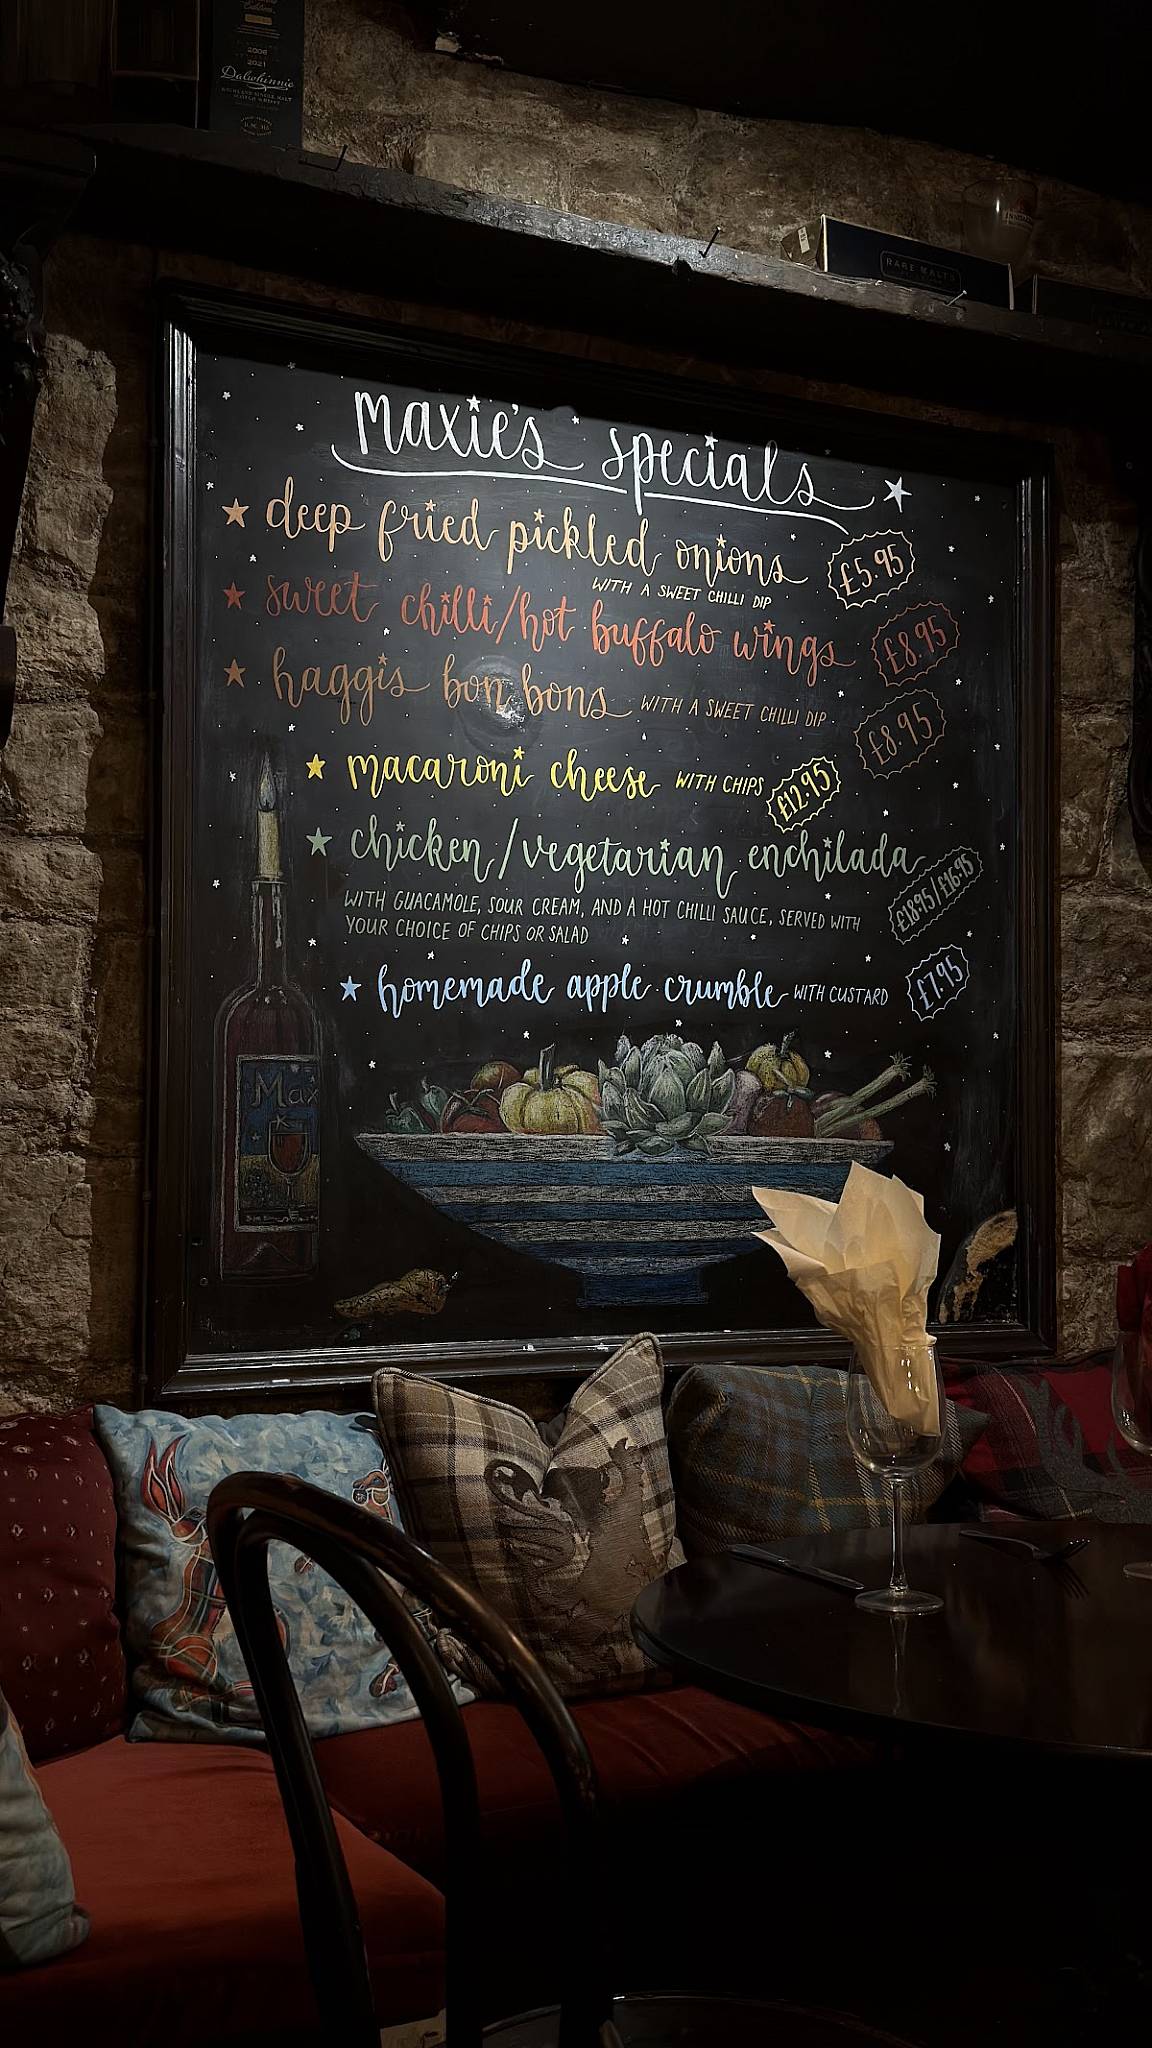 2006
2021
Dalwhinnie
HIGHLAND SINGLE MALT
SCOTCH WHISKY
RARE MALTS
Maxie's specials
deep fried pickled onions £5.95
WITH A SWEET CHILLI DIP
sweet chilli/hot buffalo wings £8.95
haggis bon bons WITH A SWEET CHILLI DIP £8.95
macaroni cheese WITH CHIPS £12.95
chicken/vegetarian enchilada £18.95/£16.95
WITH GUACAMOLE, SOUR CREAM, AND A HOT CHILLI SAUCE, SERVED WITH
YOUR CHOICE OF CHIPS OR SALAD
homemade apple crumble WITH CUSTARD £7.95
Max